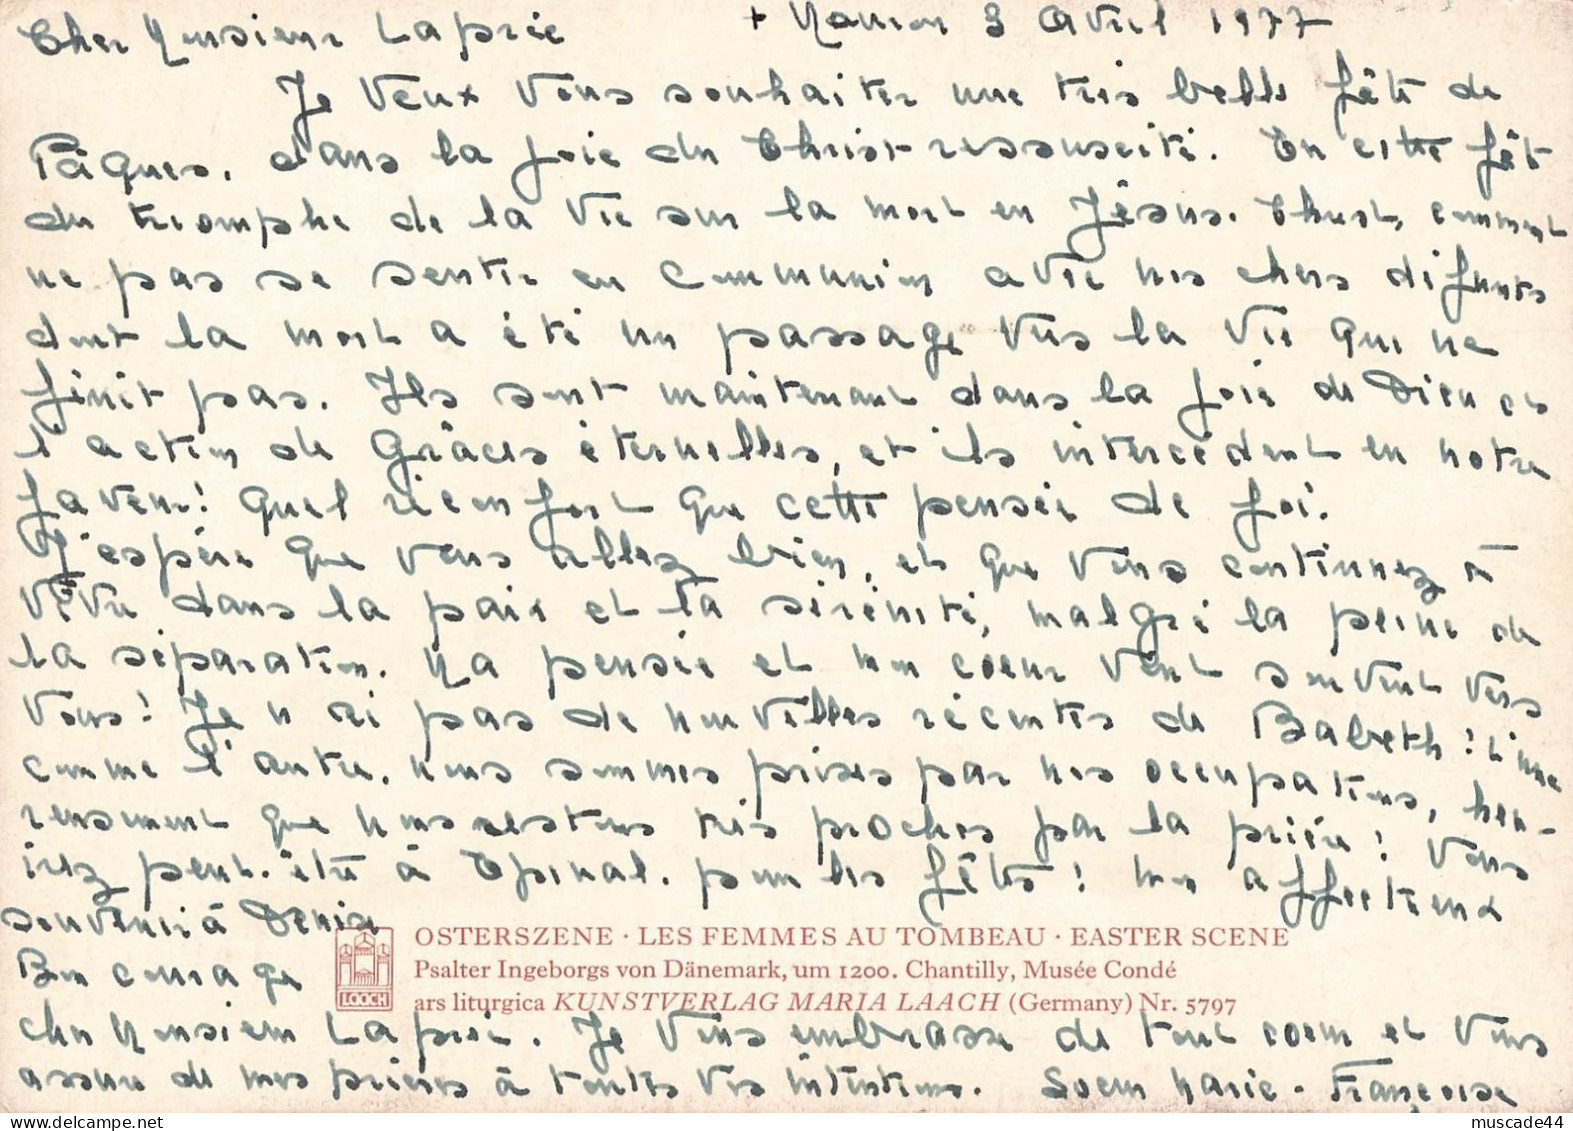 Cher Monsieur Laprée + 3 Avril 1977
Je veux vous souhaiter une très belle fête de
Pâques, dans la joie du Christ ressuscité. En cette fête
du triomphe de la vie sur la mort en Jésus. Christ, comment
ne pas se sentir en communion avec nos chers défunts
dont la mort a été un passage vers la vie qui ne
finit pas. Ils sont maintenant dans la joie de Dieu et
l'action de Grâces éternelles, et ils intercèdent en notre
faveur! Quel réconfort que cette pensée de foi.
J'espère que vous allez bien, et que vous continuez à
vivre dans la paix et la sérénité, malgré la peine de
la séparation. Ma pensée et mon coeur vont souvent vers
vous! Je n'ai pas de nouvelles récentes de Babeth! L'une
comme l'autre, nous sommes prises par nos occupations, heu-
reusement que nous restons très proches par la prière! Vous
irez peut-être à Epinal, pour les fêtes! Mon affectueux
souvenir à Denise
Bon courage
OSTERSZENE · LES FEMMES AU TOMBEAU · EASTER SCENE
Psalter Ingeborgs von Dänemark, um 1200. Chantilly, Musée Condé
LAACH ars liturgica KUNSTVERLAG MARIA LAACH (Germany) Nr. 5797
cher Monsieur Laprée. Je vous embrasse de tout coeur et vous
assure de mes prières à toutes vos intentions. Soeur Marie-Françoise
muscade44